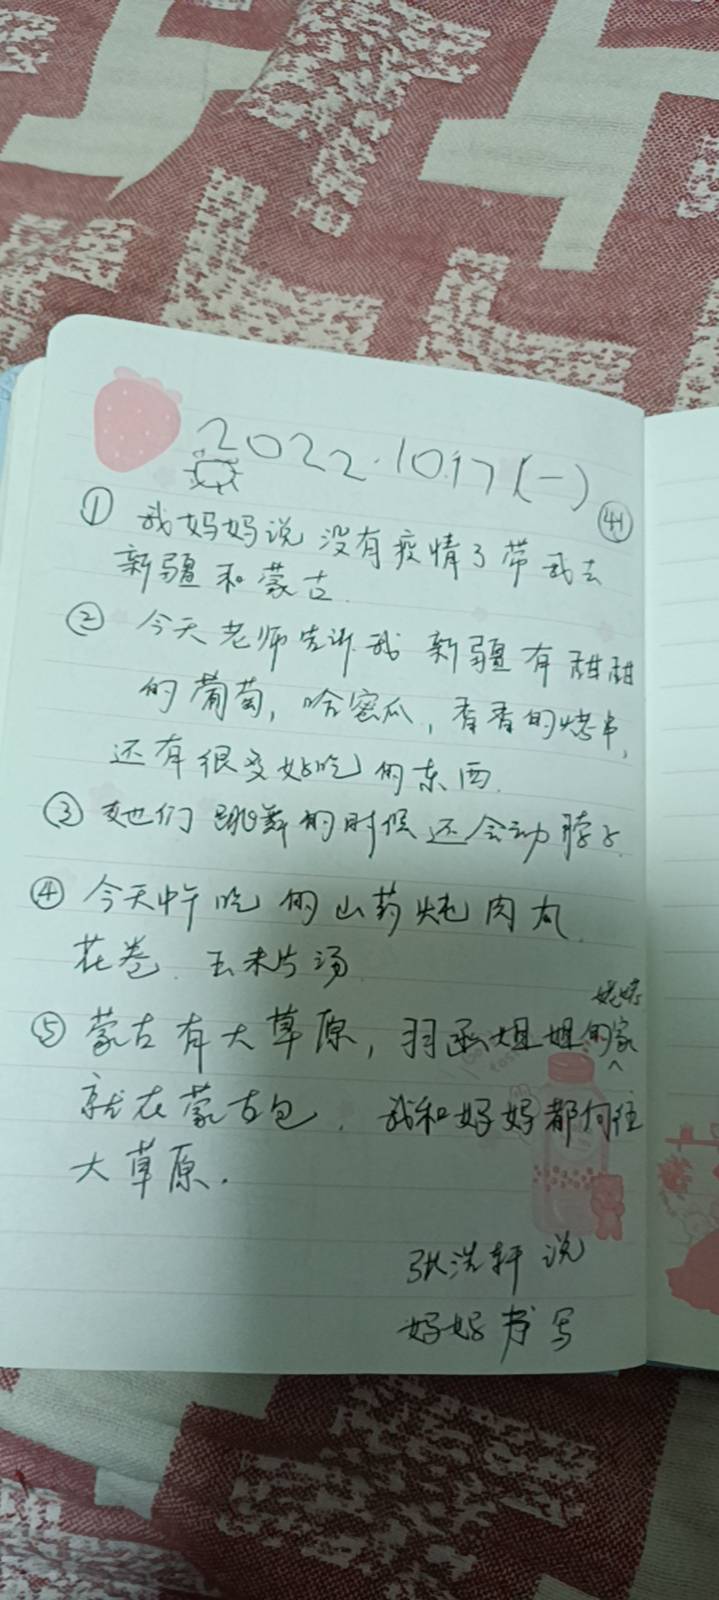 2022.10.17(一)
㊶
① 我妈妈说没有疫情了带我去
新疆和蒙古.
② 今天老师告诉我 新疆有甜甜
的葡萄,哈密瓜,香香的烤串,
还有很多好吃的东西.
③ 她们跳舞的时候还会动脖子.
④ 今天中午吃的山药炖肉丸.
花卷.玉米片汤.
姥姥
⑤ 蒙古有大草原,羽函姐姐的家
就在蒙古包.我和妈妈都向往
大草原.
张洪轩说
妈妈书写